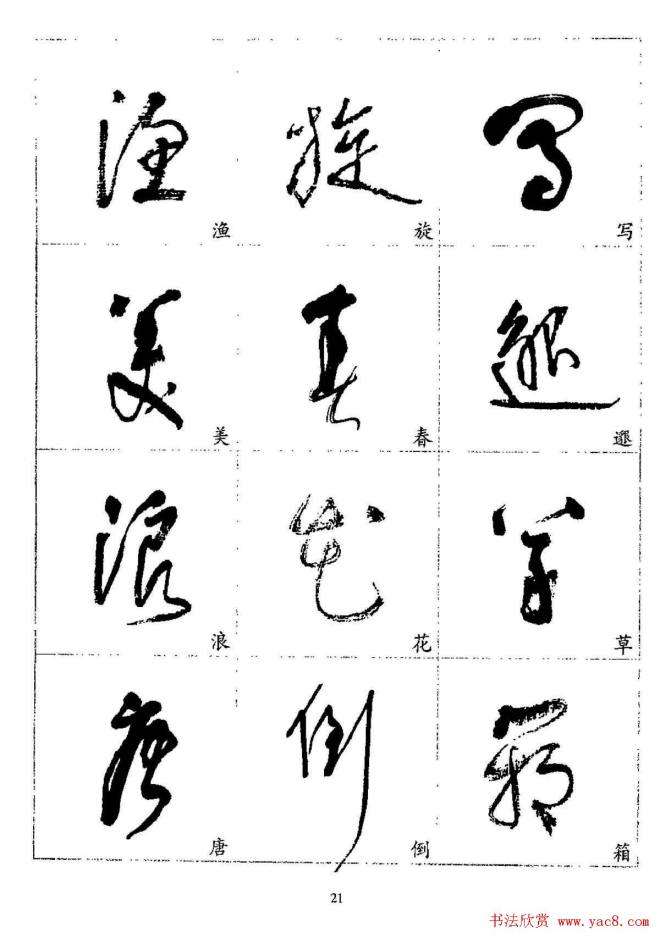 渔 旋 写
美 春 邀
浪 花 草
唐 倒 箱
21
书法欣赏 www.yac8.com